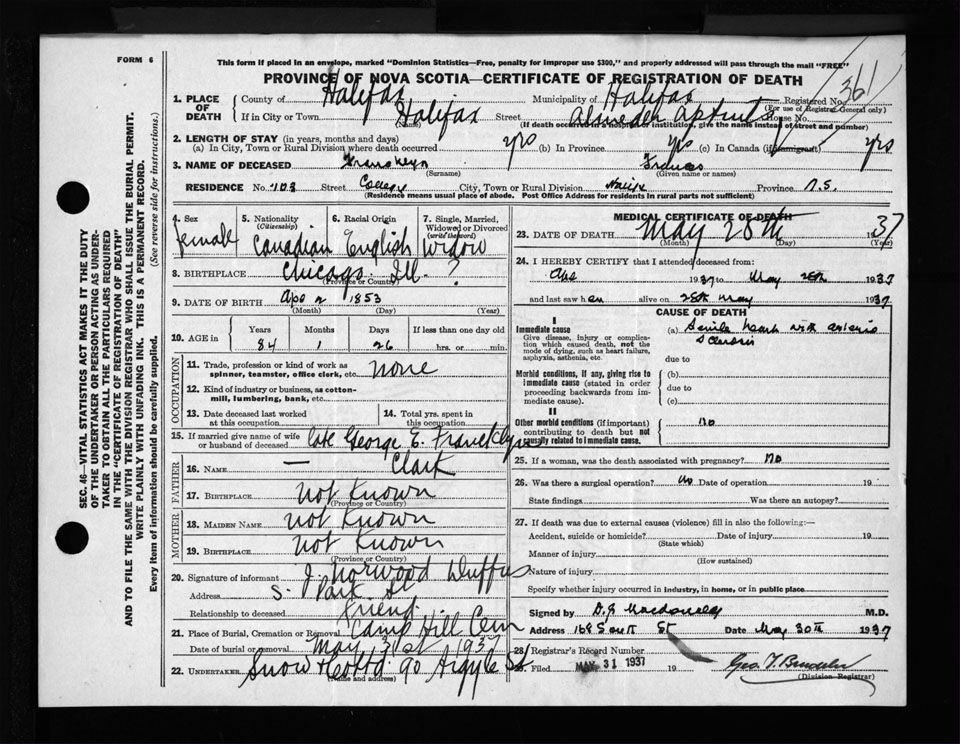 FORM 6
This form if placed in an envelope, marked "Dominion Statistics—Free, penalty for improper use $300," and properly addressed will pass through the mail "FREE"
PROVINCE OF NOVA SCOTIA—CERTIFICATE OF REGISTRATION OF DEATH
361
1. PLACE OF DEATH
County of Halifax Municipality of Halifax Registered No.
(For use of Registrar General only)
If in City or Town Halifax Street House No.
(Name) (If death occurred in a hospital or institution, give the name instead of street and number)
2. LENGTH OF STAY (in years, months and days)
(a) In City, Town or Rural Division where death occurred yrs (b) In Province yrs (c) In Canada (if immigrant) yrs
3. NAME OF DECEASED Francklyn Frances
(Surname) (Given name or names)
RESIDENCE No. 103 Street College City, Town or Rural Division Province N.S.
(Residence means usual place of abode. Post Office Address for residents in rural parts not sufficient)
4. Sex female
5. Nationality (Citizenship) Canadian
6. Racial Origin English
7. Single, Married, Widowed or Divorced (write the word) Widow
8. BIRTHPLACE Chicago. Ill. ?
(Province or Country)
9. DATE OF BIRTH Ap 2 1853
(Month) (Day) (Year)
10. AGE in Years Months Days If less than one day old
84 1 26 hrs. or min.
OCCUPATION
11. Trade, profession or kind of work as spinner, teamster, office clerk, etc. none
12. Kind of industry or business, as cotton-mill, lumbering, bank, etc.
13. Date deceased last worked at this occupation
14. Total yrs. spent in this occupation
15. If married give name of wife or husband of deceased late George E. Francklyn
FATHER
16. NAME — Clark
17. BIRTHPLACE not Known
(Province or Country)
MOTHER
18. MAIDEN NAME not Known
19. BIRTHPLACE not Known
(Province or Country)
20. Signature of informant J. Norwood Duffus
Address S. Park St
Relationship to deceased friend.
21. Place of Burial, Cremation or Removal Camp Hill Cem
Date of burial or removal May 31st 1937
22. UNDERTAKER Snow 90 Argyle St
(Name and address)
MEDICAL CERTIFICATE OF DEATH
23. DATE OF DEATH May 28th 1937
(Month) (Day) (Year)
24. I HEREBY CERTIFY that I attended deceased from:
1937 to May 28th 1937
and last saw her alive on 28th May 1937
CAUSE OF DEATH
I
Immediate cause
Give disease, injury or complication which caused death, not the mode of dying, such as heart failure, asphyxia, asthenia, etc.
(a) Senile heart with arterio
Sclerosis
due to
Morbid conditions, if any, giving rise to immediate cause (stated in order proceeding backwards from immediate cause).
(b)
due to
(c)
II
Other morbid conditions (if important) contributing to death but not causally related to immediate cause.
no
25. If a woman, was the death associated with pregnancy? no
26. Was there a surgical operation? no Date of operation 19
State findings Was there an autopsy?
27. If death was due to external causes (violence) fill in also the following:—
Accident, suicide or homicide? Date of injury 19
(State which)
Manner of injury
(How sustained)
Nature of injury
Specify whether injury occurred in industry, in home, or in public place
Signed by Macdonald M.D.
Address 168 South St Date May 30th 1937
28. Registrar's Record Number
29. Filed MAY 31 1937 19
(Division Registrar)
SEC. 46—VITAL STATISTICS ACT MAKES IT THE DUTY
OF THE UNDERTAKER OR PERSON ACTING AS UNDERTAKER TO OBTAIN ALL THE PARTICULARS REQUIRED
IN THE "CERTIFICATE OF REGISTRATION OF DEATH"
AND TO FILE THE SAME WITH THE DIVISION REGISTRAR WHO SHALL ISSUE THE BURIAL PERMIT.
WRITE PLAINLY WITH UNFADING INK. THIS IS A PERMANENT RECORD.
Every item of information should be carefully supplied. (See reverse side for instructions.)